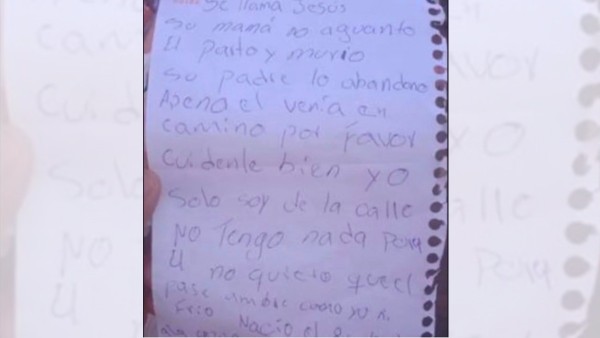 Se llama Jesús
su mamá no aguanto
El parto y murio
Su padre lo abandono
Apena el venia en
camino por favor
Cuidenle bien yo
Solo soy de la calle
NO Tengo nada para
El no quiero que el
pase ambre como yo
Frio Nacio el